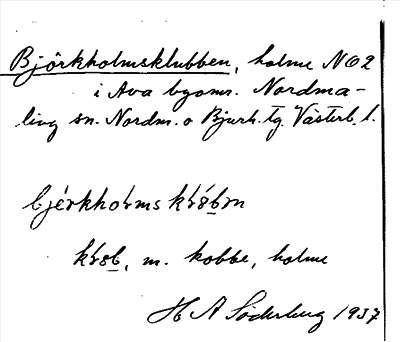 Björkholmsklubben, holme NO2
i Ava byomr. Nordma-
ling sn. Nordm. o Bjurh. tg. Västerb. l.
m. kobbe, holme
H A Söderberg 1937